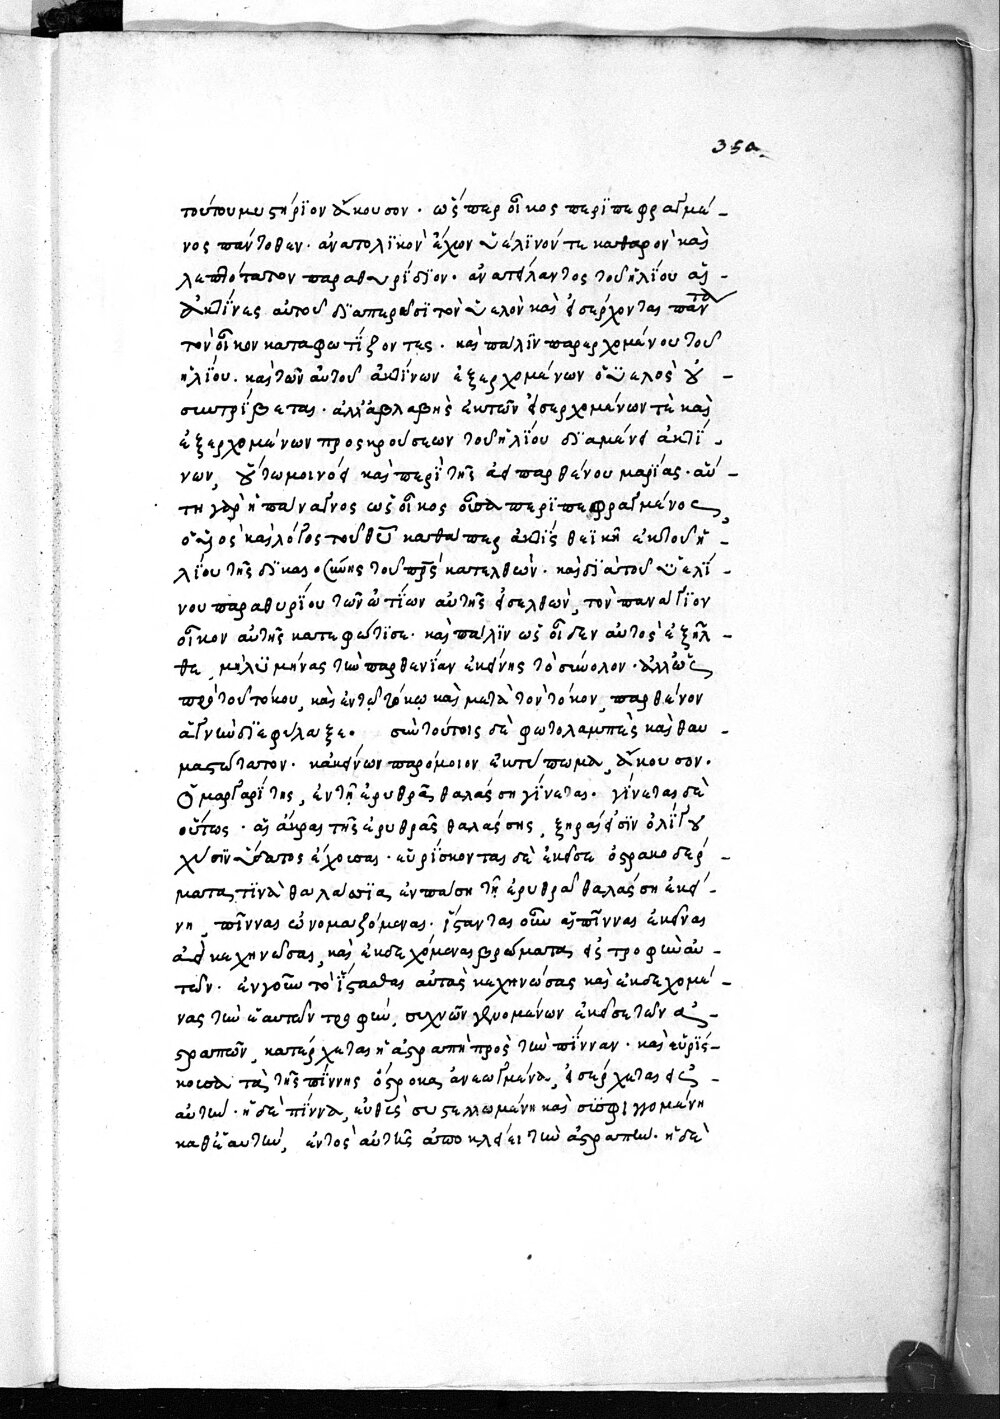 350.
τούτου μυστήριον ἄκουσον · ὥσπερ οἶκος περιπεφραγμέ-
νος πάντοθεν · ἀνατολικὸν ἔχων ὑέλινόν τε καθαρὸν καὶ
λεπτότατον παραθυρίδιον · ἀνατείλαντος τοῦ ἡλίου αἱ
ἀκτῖνες αὐτοῦ διαπερῶσι τὸν ὕελον καὶ εἰσέρχονται πάντα
τὸν οἶκον καταφωτίζοντες · καὶ πάλιν παρερχομένου τοῦ
ἡλίου · καὶ τῶν αὐτοῦ ἀκτίνων ἐξερχομένων ὁ ὕελος οὐ
συντρίβεται · ἀλλ' ἀβλαβὴς ἐκ τῶν εἰσερχομένων τὲ καὶ
ἐξερχομένων προσκρούσεων τοῦ ἡλίου διαμένει ἀκτί-
νων, οὕτω μοι νόει καὶ περὶ τῆς ἀειπαρθένου μαρίας · αὐ-
τη γὰρ ἡ πάναγνος ὡς οἶκος οὖσα περιπεφραγμένος,
ὁ υἱὸς καὶ λόγος τοῦ θυ καθάπερ ἀκτὶς θεϊκὴ ἐκ τοῦ ἡ-
λίου τῆς δικαιοσύνης τοῦ πρς κατελθὼν · καὶ διὰ τοῦ ὑελί-
νου παραθυρίου τῶν ὠτίων αὐτῆς εἰσελθὼν, τὸν πανάγιον
οἶκον αὐτῆς κατεφώτισε · καὶ πάλιν ὡς οἶδεν αὐτὸς ἐξῆλ-
θε, μὴ λυμήνας τὴν παρθενίαν ἐκείνης τὸ σύνολον · ἀλλ' ὡς
πρὸ τοῦ τόκου, καὶ ἐν τῷ τόκῳ καὶ μετὰ τὸν τόκον, παρθένον
ἁγνὴν διεφύλαξε · σὺν τούτοις δὲ φωτολαμπὲς καὶ θαυ-
μαστώτατον · κἀκείνων παρόμοιον ἐκτύπωμα, ἄκουσον ·
Ὁ μαργαρίτης, ἐν τῇ ἐρυθρᾷ θαλάσσῃ γίνεται · γίνεται δὲ
οὕτως · αἱ ἄκραι τῆς ἐρυθρᾶς θαλάσσης, ξηραί εἰσϊν ὀλίγου
χύσιν ὕδατος ἔχουσαι · εὑρίσκονται δὲ ἐκεῖσε ὀστρακοδέρ-
ματα τινὰ θαλάσσια, ἐν πάσῃ τῇ ἐρυθρᾷ θαλάσσῃ ἐκεί-
νῃ, πίννας ὠνομαζόμενας · ἵστανται οὖν αἱ πίνναι ἐκεῖναι
ἀεὶ κεχηνυῖαι, καὶ ἐκδεχόμεναι βρώματα εἰς τροφὴν αὐ-
τῶν · ἐν γοῦν τὸ ἵστασθαι αὐτὰς κεχηνώσας καὶ ἐκδεχομέ-
νας τὴν ἑαυτῶν τροφὴν, συχνῶν γενομένων ἐκεῖσε τῶν ἀ-
στραπῶν, κατέρχεται ἡ ἀστραπὴ πρὸς τὴν πίνναν · καὶ εὑρίσ-
κουσα τὰ τῆς πίννης ὄστρακα ἀνεωγμένα, εἰσέρχεται εἰς
αὐτὴν · ἡ δὲ πίννα, εὐθὺς συστελλωμένη καὶ συσφιγγομένη
καθ' ἑαυτὴν, ἐντὸς αὐτῆς ἀποκλείει τὴν ἀστραπὴν · ἡ δὲ